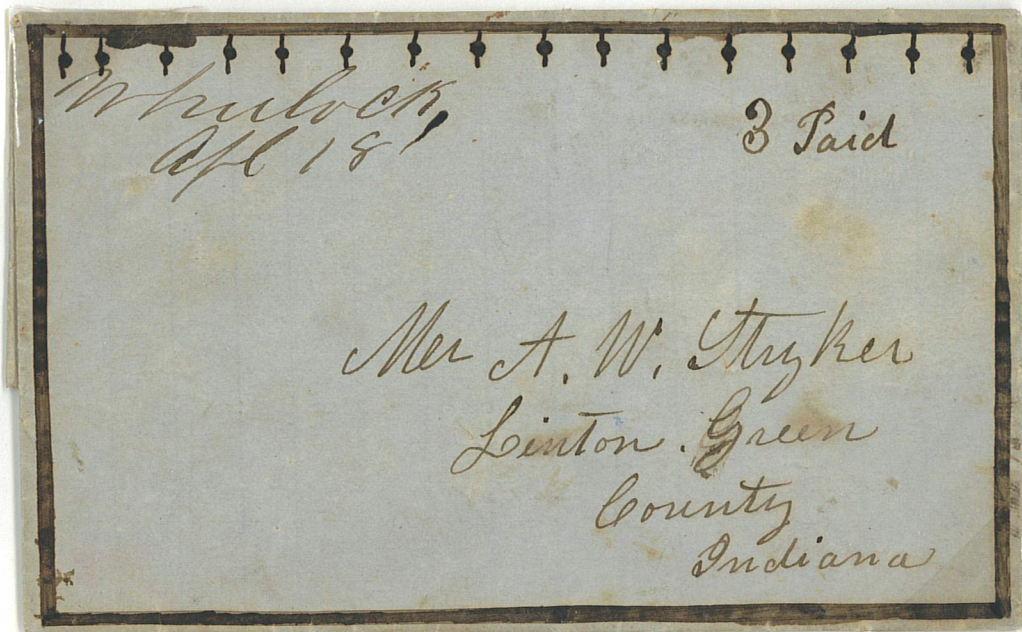 Wheelock,
Apl 18
3 Paid
Mer A. W. Stryker
Linton. Green
County
Indiana